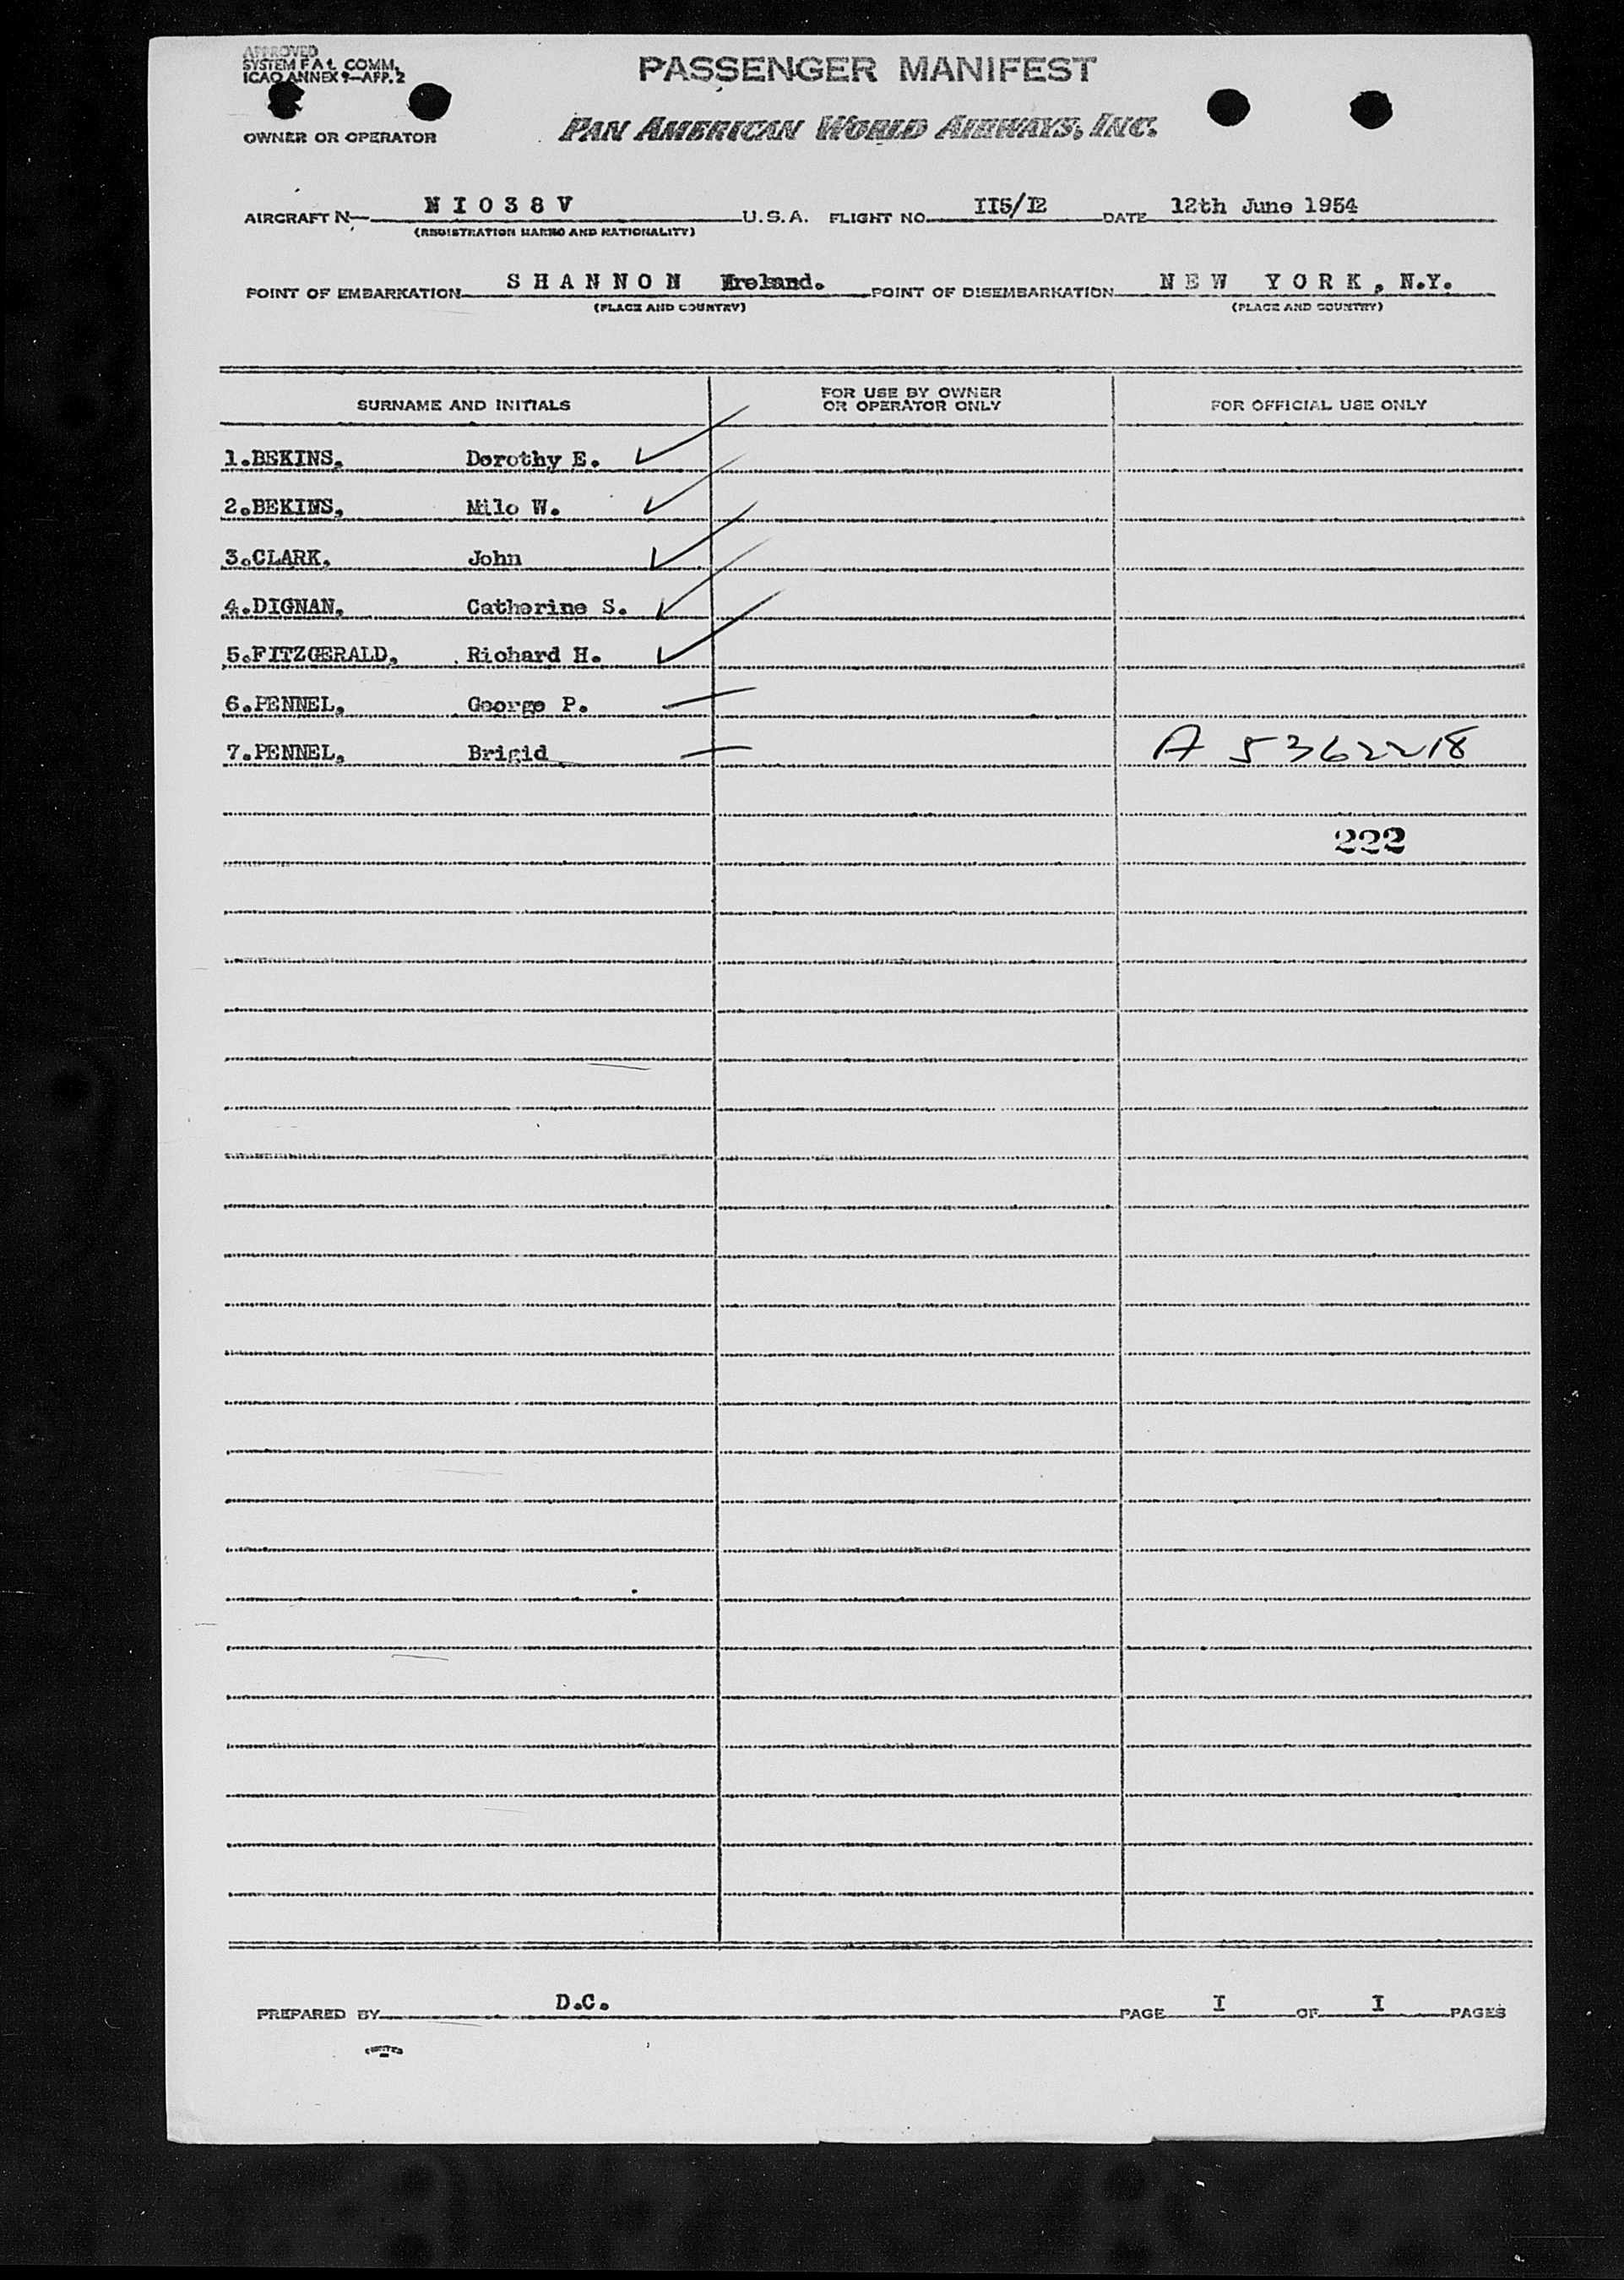 APPROVED
SYSTEM F A L COMM.
ICAO ANNEX 9—APP. 2
PASSENGER MANIFEST
OWNER OR OPERATOR PAN AMERICAN WORLD AIRWAYS, INC.
AIRCRAFT N— N I 0 3 8 V U.S.A. FLIGHT NO. II5/I2 DATE 12th June 1954
(REGISTRATION MARKS AND NATIONALITY)
POINT OF EMBARKATION S H A N N O N Ireland. POINT OF DISEMBARKATION N E W Y O R K, N.Y.
(PLACE AND COUNTRY) (PLACE AND COUNTRY)
SURNAME AND INITIALS FOR USE BY OWNER OR OPERATOR ONLY FOR OFFICIAL USE ONLY
1.BEKINS, Dorothy E.
2.BEKINS, Milo W.
3.CLARK, John
4.DIGNAN, Catherine S.
5.FITZGERALD, Richard H.
6.PENNEL, George P.
7.PENNEL, Brigid A 5362218
222
PREPARED BY D.C. PAGE I OF I PAGES